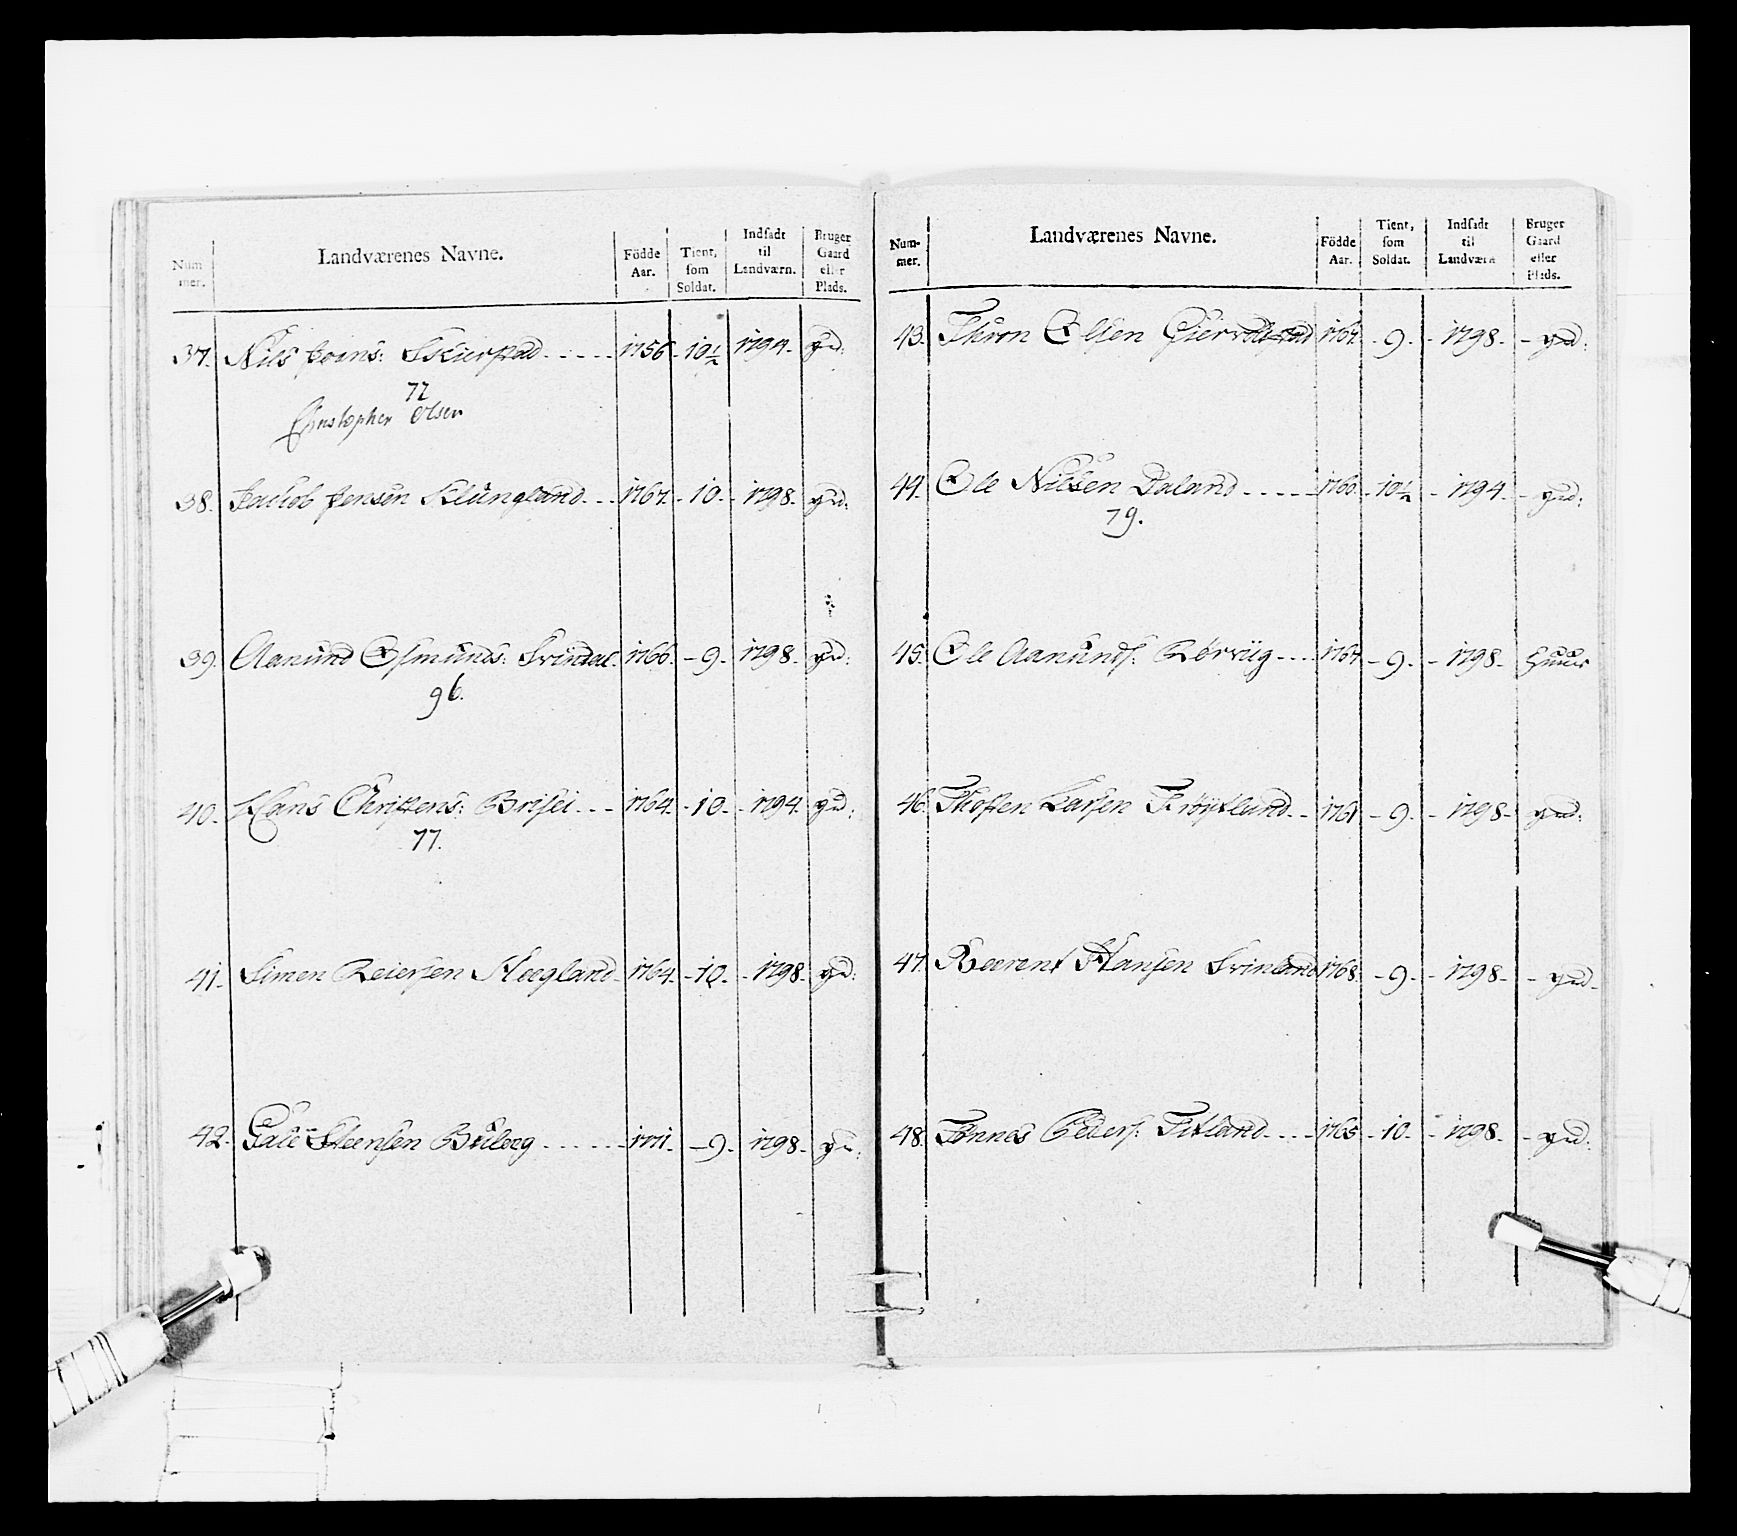 Num-mer. Landværenes Navne. Fødde Aar. Tient, som Soldat. Indsadt til Landværn. Bruger Gaard eller Plads.
37. Nils Joens: Skierstad 1756. 10½ 1794. gd:
72
Christopher Olsen
38. Jachob Jensen Klungland 1767. 10. 1798. gd:
39. Aanund Osmunds: Svindal. 1766. 9. 1798. gd:
96.
40. Hans Christens: Brisei 1764. 10. 1794. gd:
77.
41. Simen Reiersen Heegland 1764. 10. 1798. gd:
42. Gale Steensen Bieleeg 1771. 9. 1798. gd:
Num-mer. Landværenes Navne. Fødde Aar. Tient, som Soldat. Indsadt til Landværn Bruger Gaard eller Plads.
43. Thron Olsen 1767. 9. 1798. gd:
44. Ole Nilsen Daland 1760. 10½ 1794. gd:
79.
45. Ole Aanunds: Rørviig 1767. 9. 1798. Huus
46. Thosten Larsen Trøistland 1761 9. 1798. gd:
47. Beerent Hansen Svinland 1768. 9. 1798. gd.
48. Tønnes Peders: Titland 1765. 10. 1798. gd: